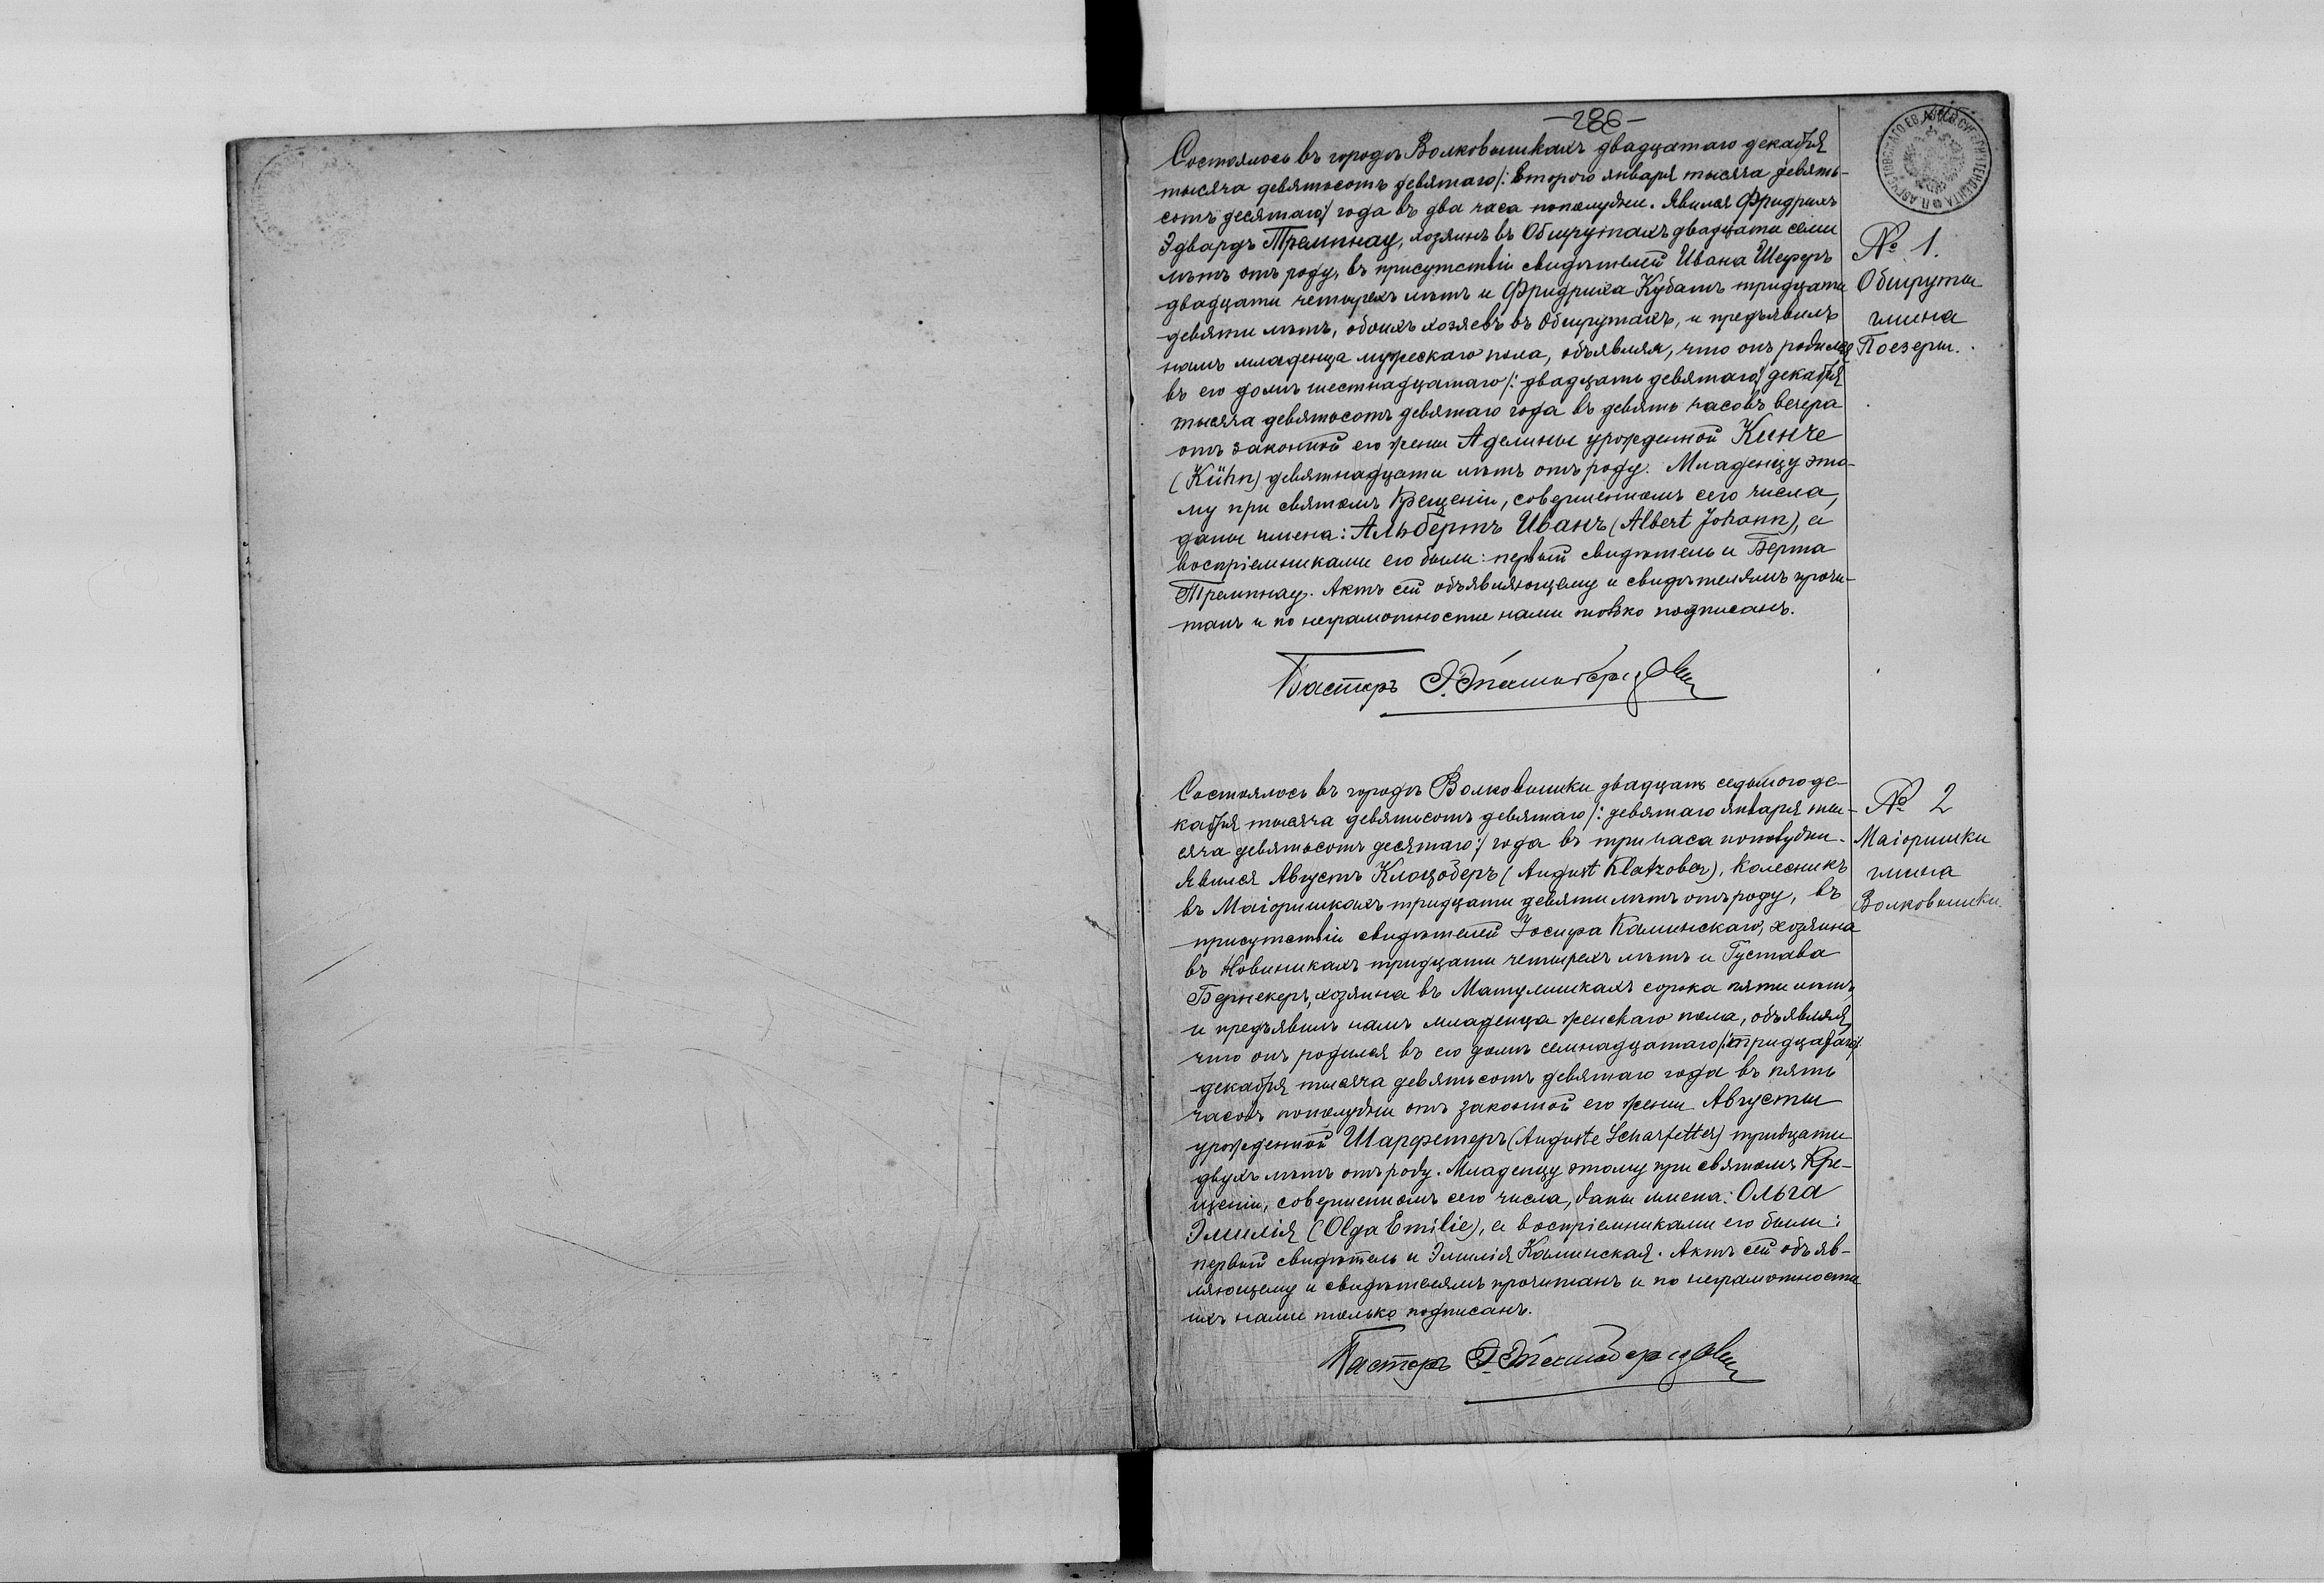 Состоялось въ городѣ Волковышкахъ двадцатаго декабря
тысяча девятьсотъ девятаго /: второго января тысяча девять-
сотъ десятаго :/ года въ два часа пополудни. Явился Фридрихъ
Эдвардъ Тремпнау, хозяинъ въ Обшрутахъ двадцати семи
лѣтъ отъ роду, въ присутствіи свидѣтелей Ивана Шеферъ
двадцати четырехъ лѣтъ и Фридриха Кубатъ тридцати
девяти лѣтъ, обоихъ хозяевъ въ Обшрутахъ, и предъявилъ
намъ младенца мужескаго пола, объявляя, что онъ родился
въ его домѣ шестнадцатаго /: двадцать девятаго :/ декабря
тысяча девятьсотъ девятаго года въ девять часовъ вечера
отъ законной его жены Аделины урожденной
(Kühn) девятнадцати лѣтъ отъ роду. Младенцу это-
му при святомъ Крещеніи, совершенномъ сего числа,
даны имена: Альбертъ Иванъ (Albert Johann), а
воспріемниками его были: первый свидѣтель и Берта
Тремпнау. Актъ сей объявляющему и свидѣтелямъ прочи-
танъ и по неграмотности нами только подписанъ.
Пасторъ
№ 1.
Обшруты
гмина
Поезеры.
Состоялось въ городѣ Волковышки двадцать седьмого де-
кабря тысяча девятьсотъ девятаго /: девятаго января ты-
сяча девятьсотъ десятаго :/ года въ три часа пополудни.
Явился Августъ Клацоберъ (August Klatzober), колесникъ
въ Маіоришкахъ тридцати девяти лѣтъ отъ роду, въ
присутствіи свидѣтелей Іосифа Каминскаго, хозяина
въ Новиникахъ тридцати четырехъ лѣтъ и Густава
Бернекеръ, хозяина въ Матулишкахъ сорока пяти лѣтъ,
и предъявилъ намъ младенца женскаго пола, объявляя,
что онъ родился въ его домѣ семнадцатаго /: тридцатаго :/
декабря тысяча девятьсотъ девятаго года въ пять
часовъ пополудни отъ законной его жены Августы
урожденной Шарфетеръ (Auguste Scharfetter) тридцати
двухъ лѣтъ отъ роду. Младенцу этому при святомъ Кре-
щеніи, совершенномъ сего числа, даны имена: Ольга
Эмилія (Olga Emilie), а воспріемниками его были:
первый свидѣтель и Эмилія Каминская. Актъ сей объяв-
ляющему и свидѣтелямъ прочитанъ и по неграмотности
ихъ нами только подписанъ.
Пасторъ
№ 2
Маіоришки
гмина
Волковышки.